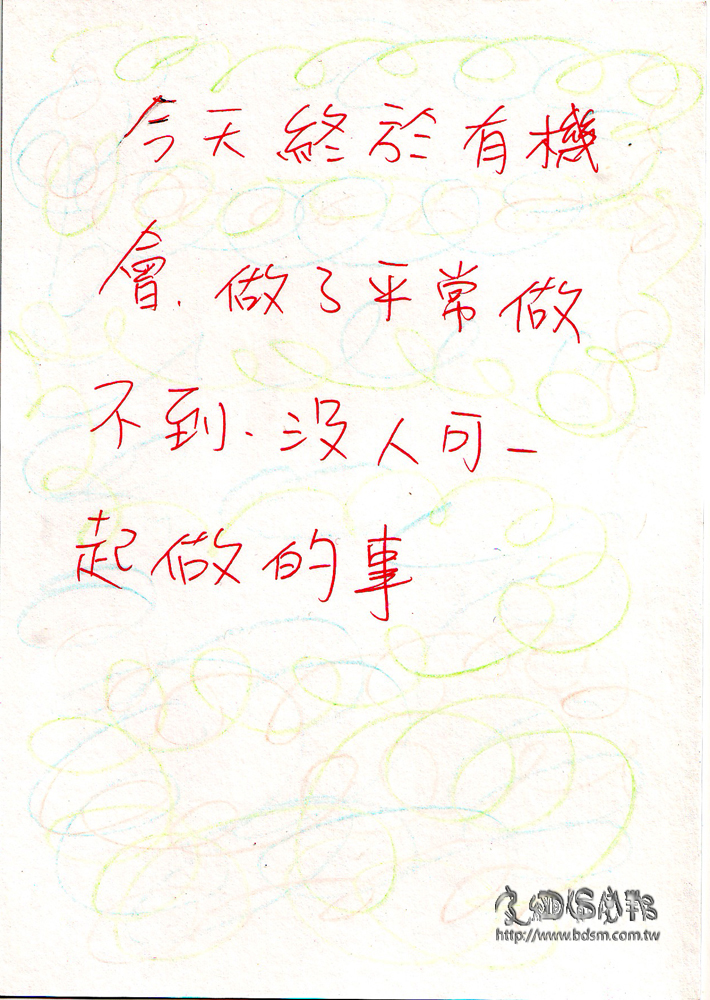 今天終於有機
會、做了平常做
不到、沒人可一
起做的事
http://www.bdsm.com.tw